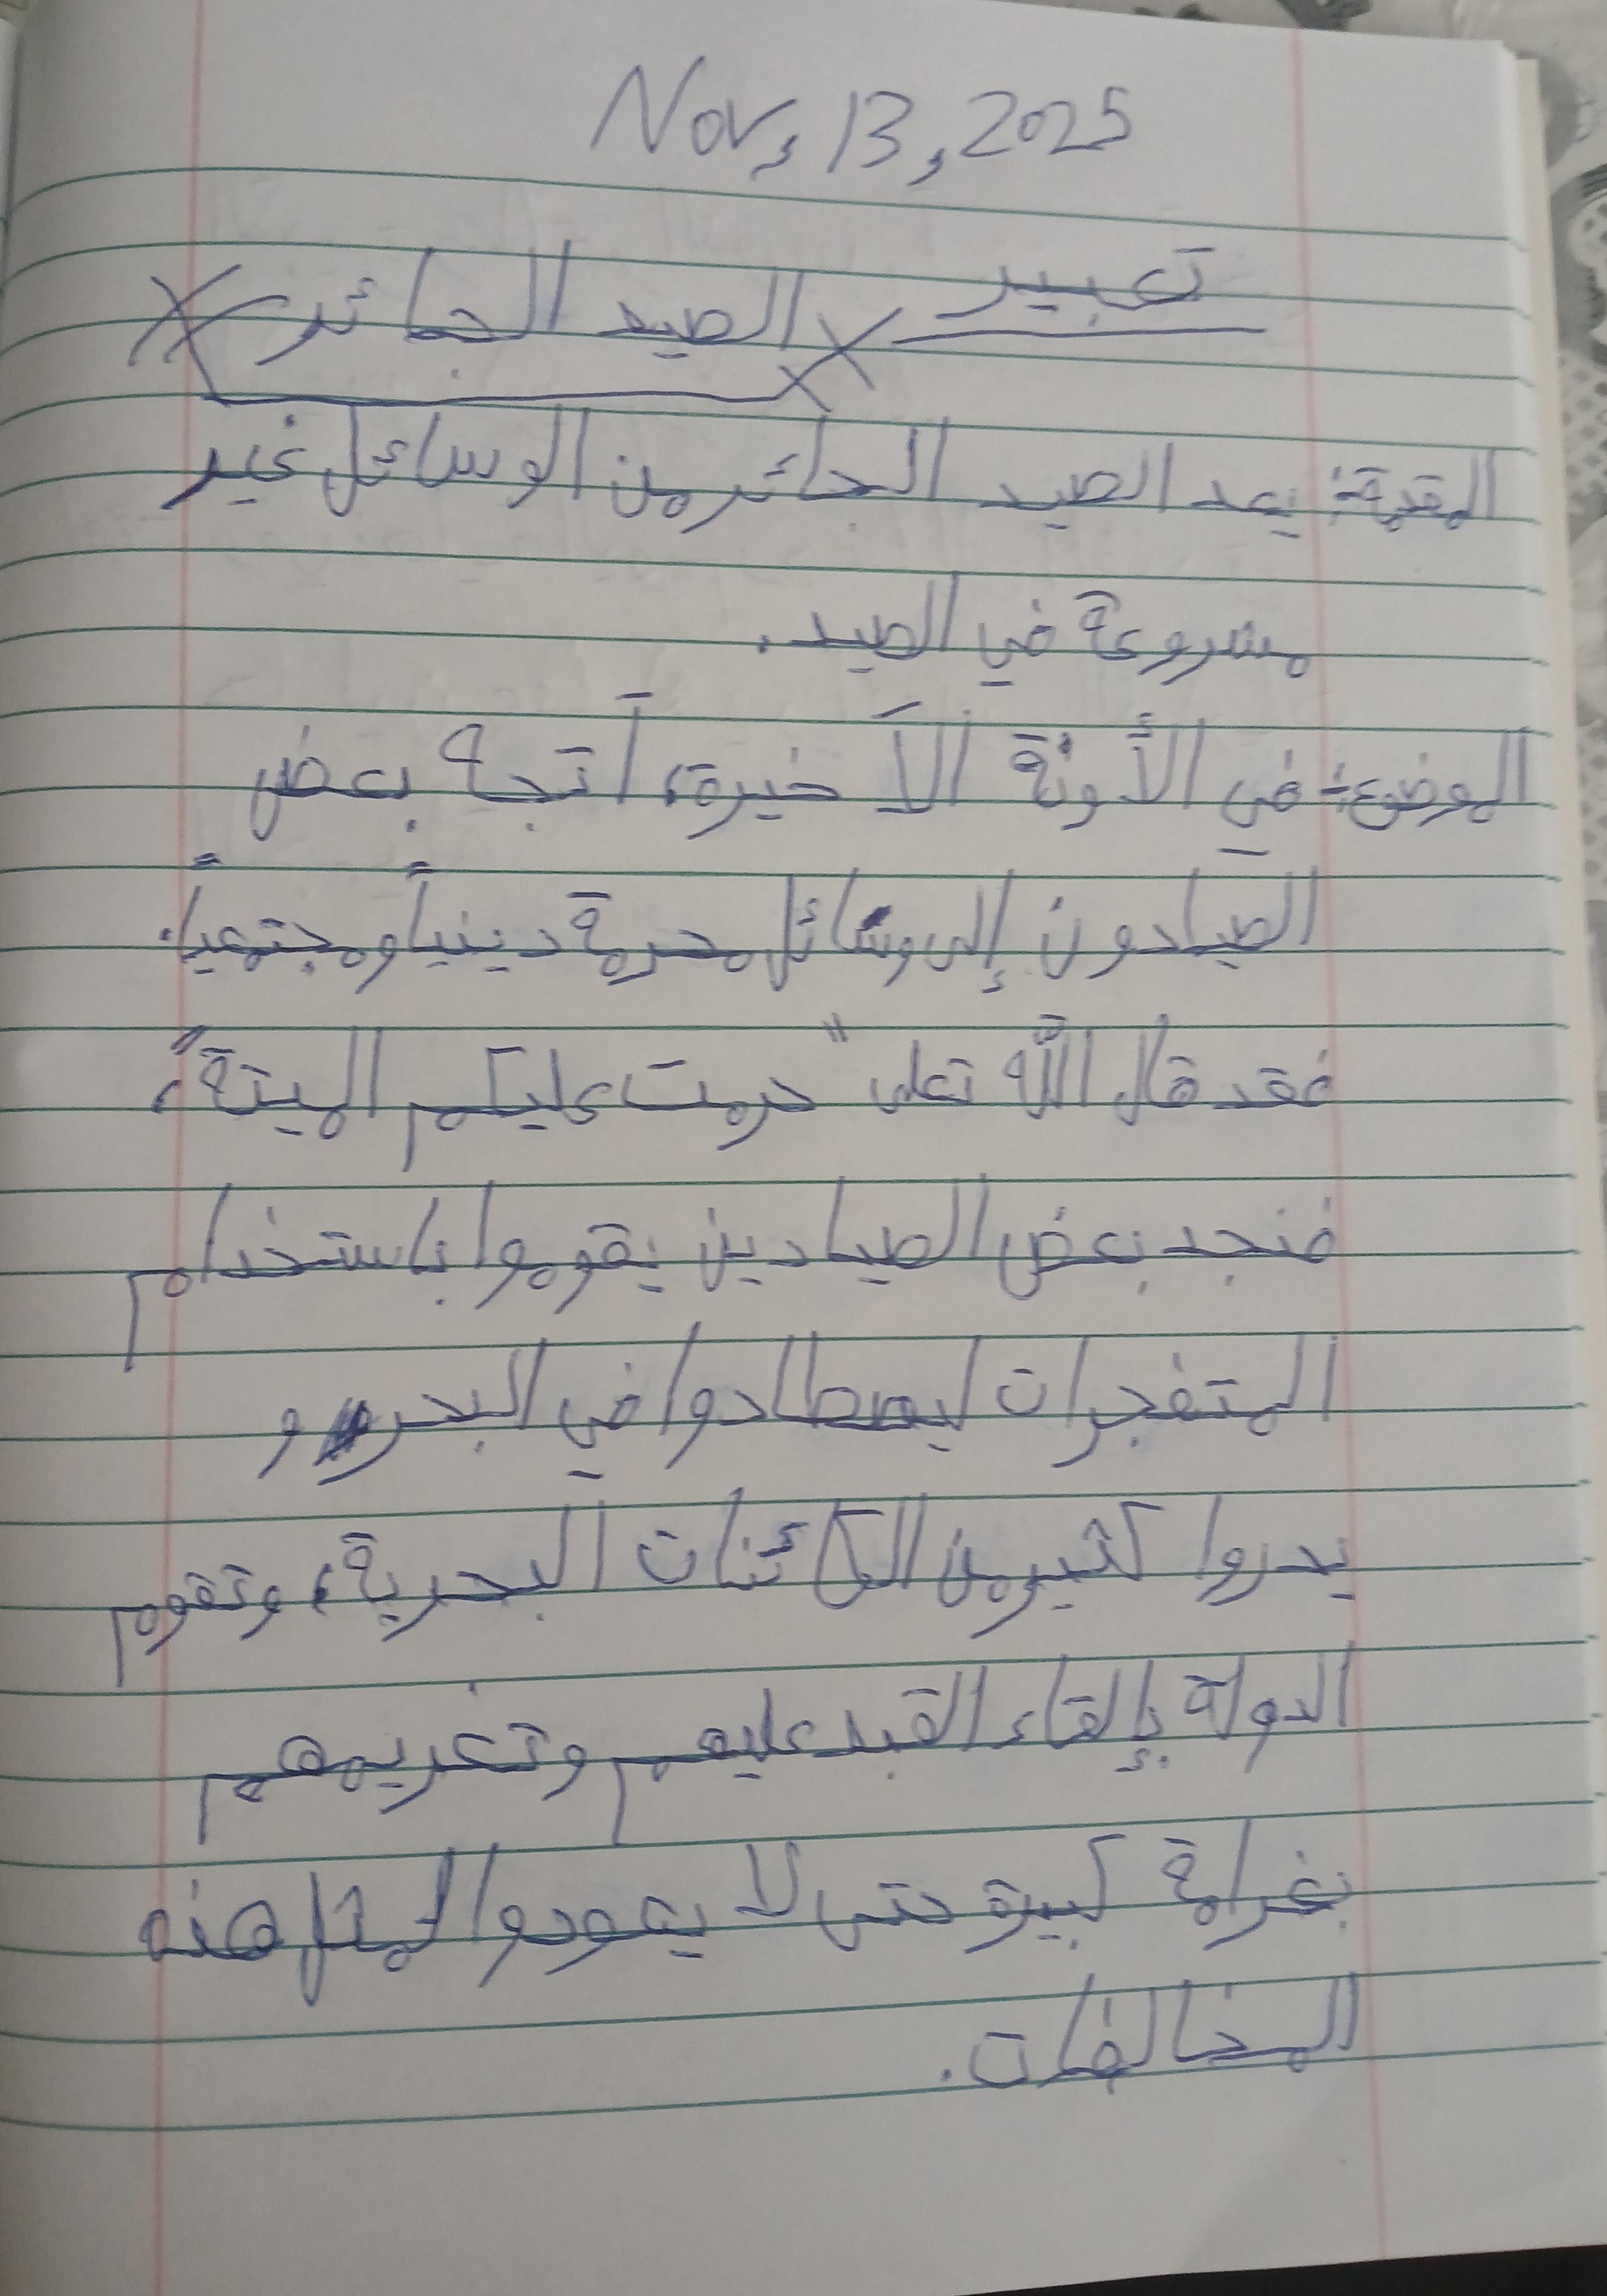 Nov, 13, 2025
تعبير
الصيد الجائر
المقدمة: يعد الصيد الجائر من الوسائل غير
مشروعة في الصيد.
الموضوع: في الأونة الأخيرة، أتجة بعض
الصيادون إلى وسائل محرمة دينياً ومجتمعياً.
فقد قال اللّه تعلى "حرمت عليكم الميتة"،
فنجد بعض الصيادين يقوموا باستخدام
المتفجرات ليصطادوا في البحر و
يدروا كثير من الكائنات البحرية، وتقوم
الدولة بإلقاء القبد عليهم وتغريمهم
بغرامة كبيرة حتى لا يعودوا لمثل هذه
المخالفات.